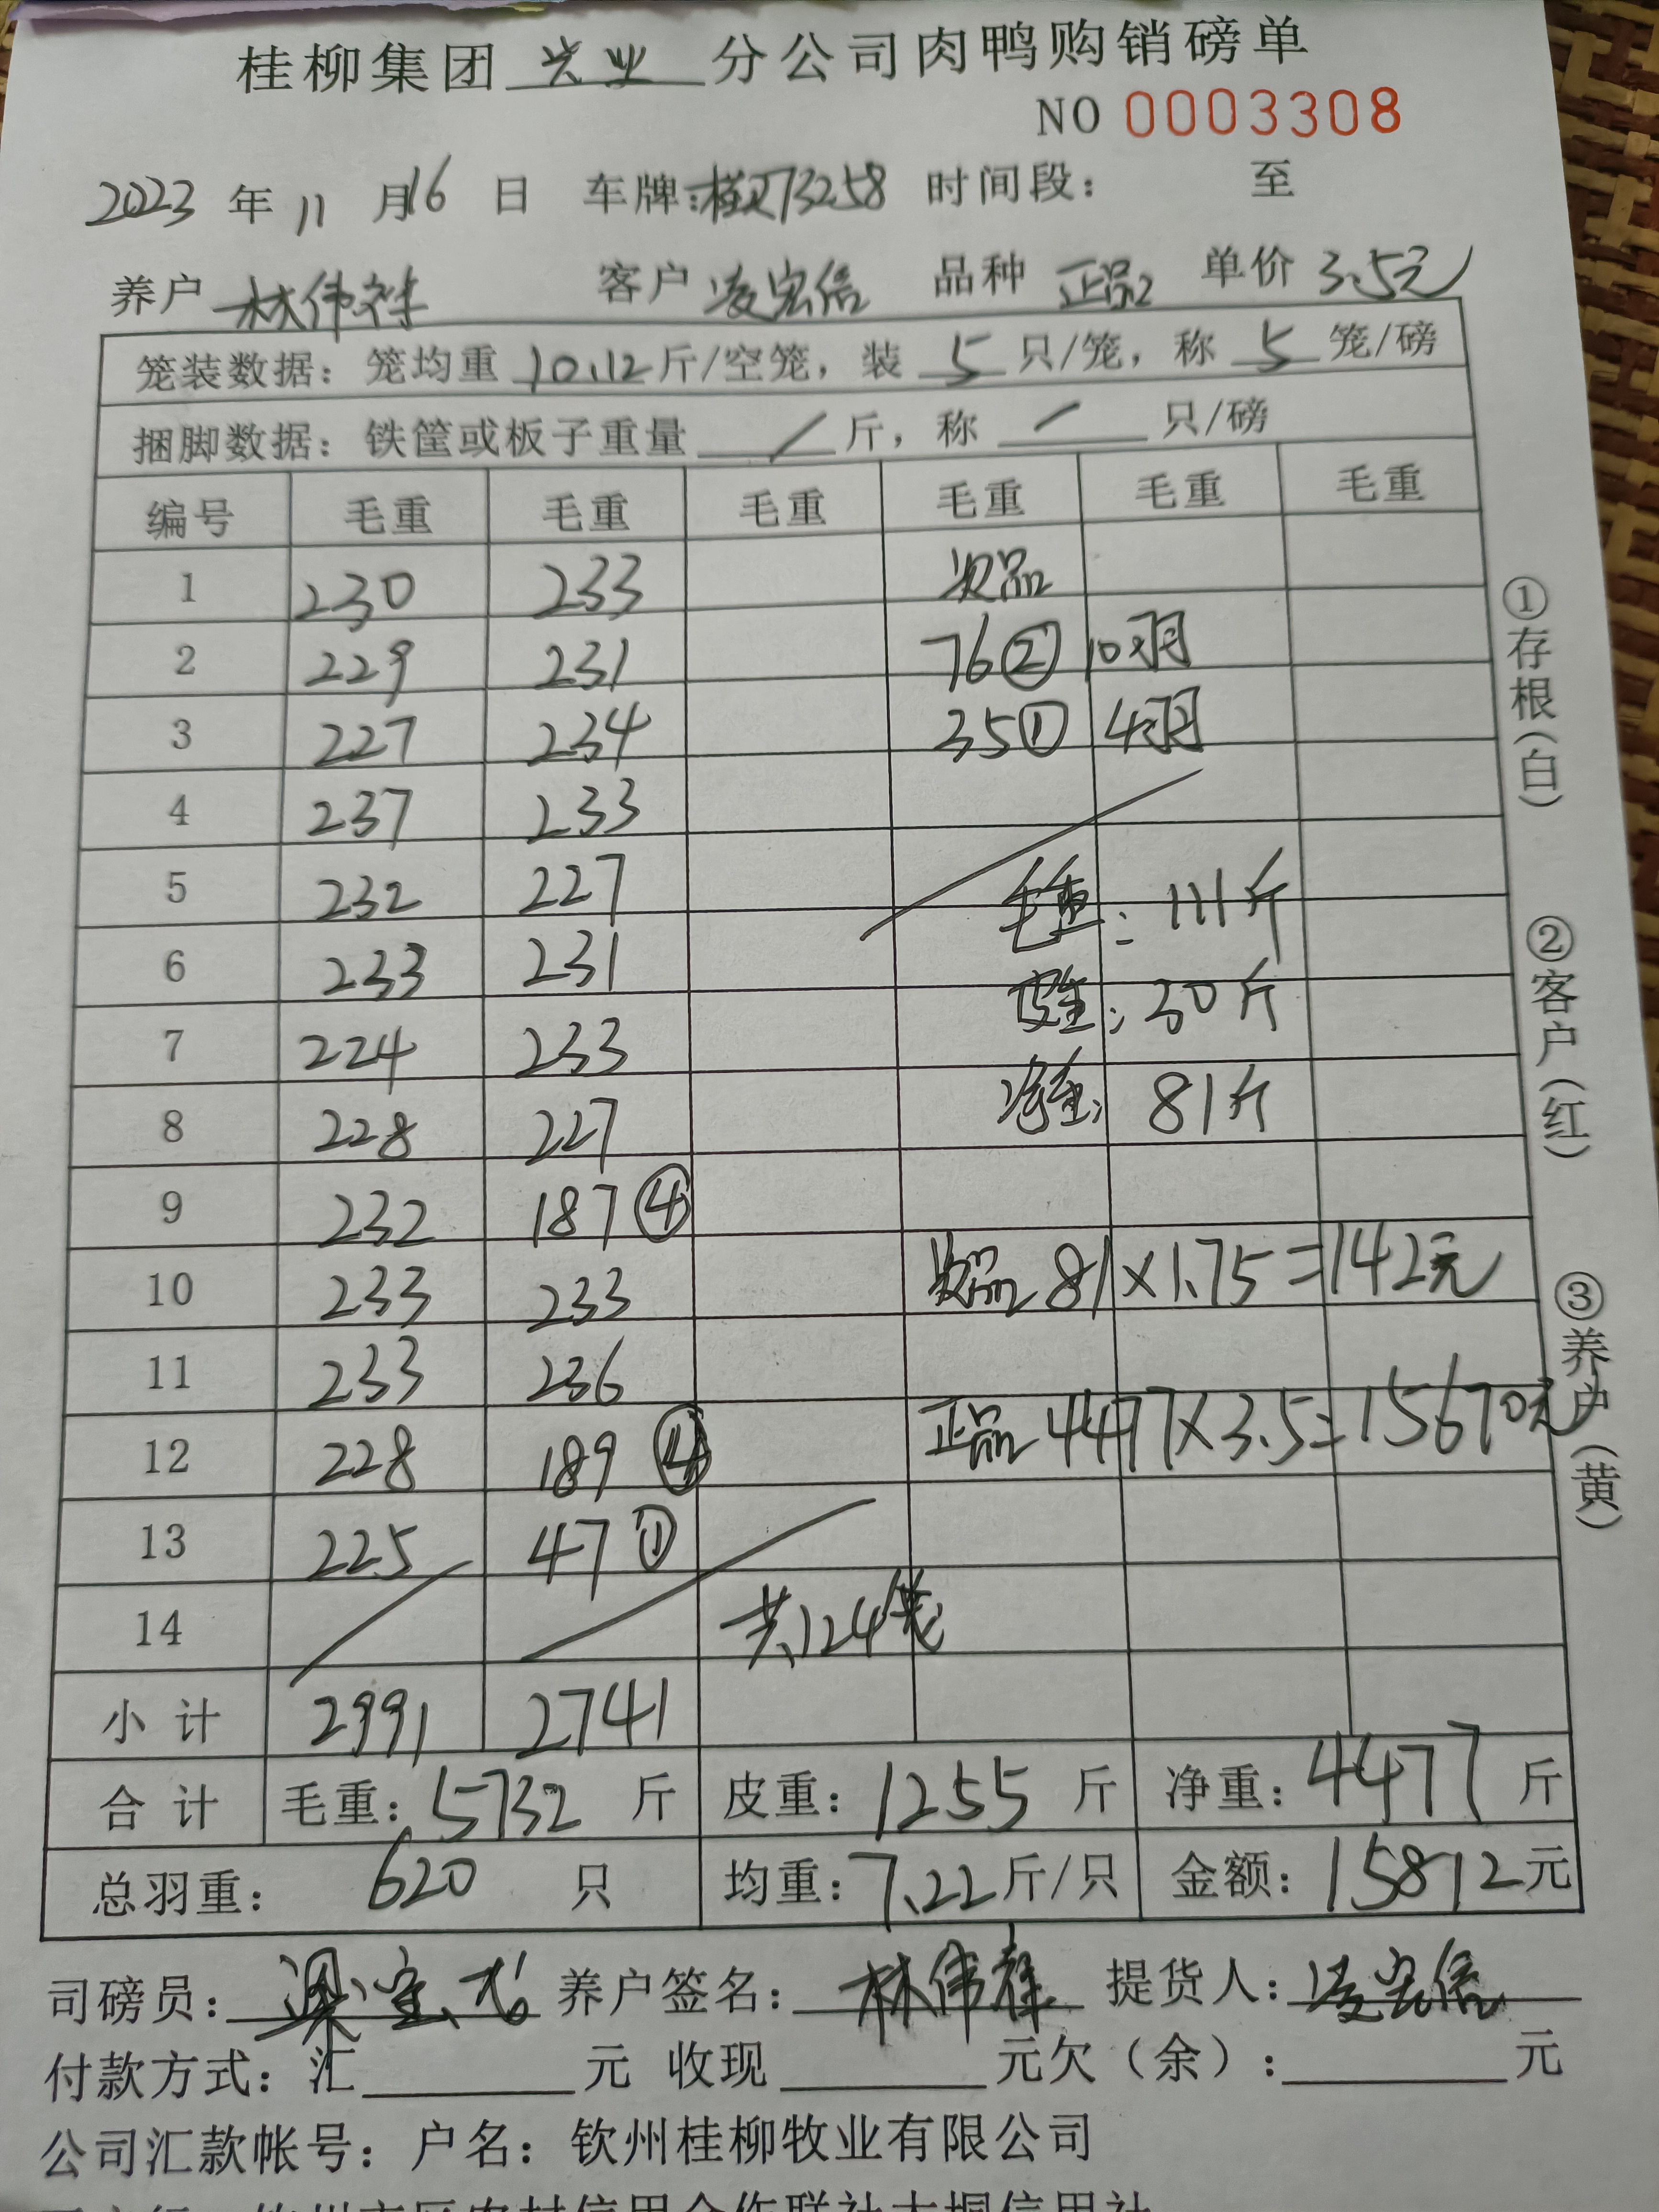 桂柳集团 兴业 分公司肉鸭购销磅单
NO 0003308
2023 年 11 月 16 日 车牌: 73258 时间段: 至
养户 林伟祥 客户 凌宏信 品种 正品 单价 3.5元
笼装数据: 笼均重 10.12 斤/空笼, 装 5 只/笼, 称 5 笼/磅
捆脚数据: 铁筐或板子重量 / 斤, 称 / 只/磅
编号 毛重 毛重 毛重 毛重 毛重 毛重
1 230 233 次品
2 229 231 76② 10只
3 227 234 35① 4只
4 237 233
5 232 227 毛重: 111斤
6 233 231 皮重: 30斤
7 224 233 净重: 81斤
8 228 227
9 232 187④
10 233 233 次品 81×1.75=142元
11 233 236
12 228 189④ 正品 4477×3.5=15670元
13 225 47①
14 共124笼
小计 2991 2741
合计 毛重: 5732 斤 皮重: 1255 斤 净重: 4477 斤
总羽重: 620 只 均重: 7.22斤/只 金额: 15812元
司磅员: 养户签名: 林伟祥 提货人: 凌宏信
付款方式: 汇 元 收现 元欠(余): 元
公司汇款帐号: 户名: 钦州桂柳牧业有限公司
①存根(白)
②客户(红)
③养户(黄)